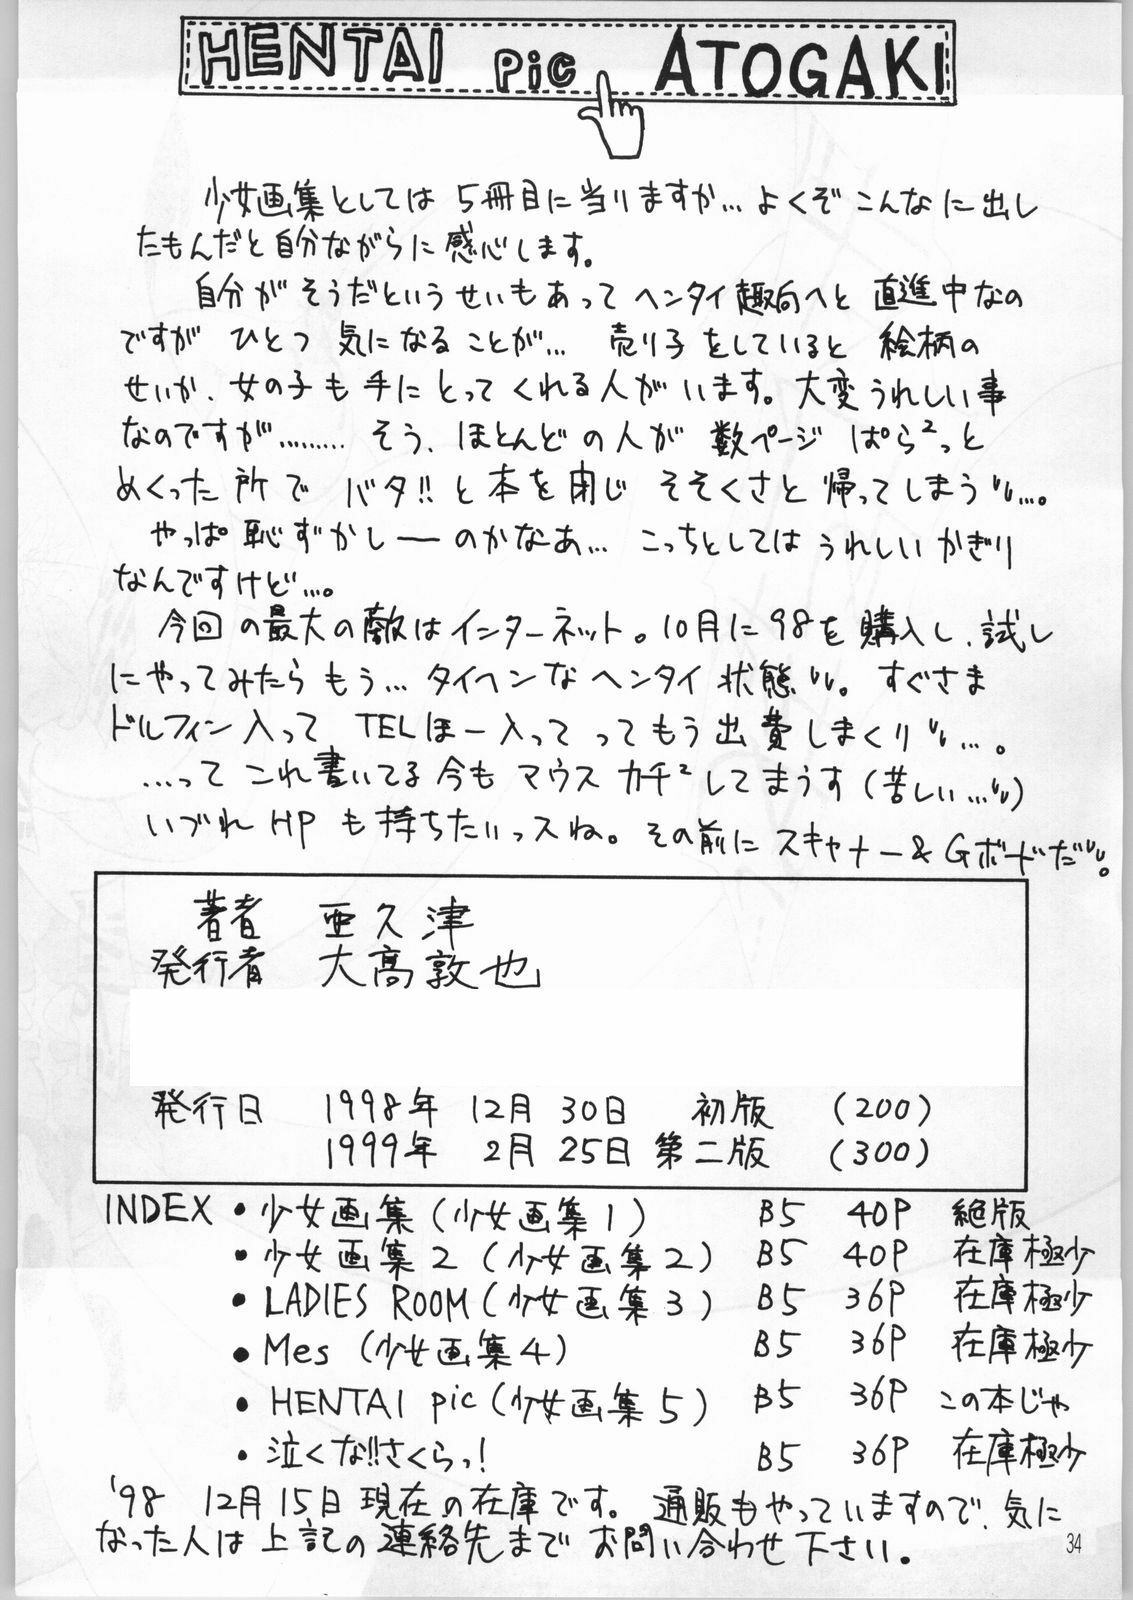 HENTAI Pic ATOGAKI
少女画集としては 5冊目に当りますか… よくぞ こんなに出し
たもんだと自分ながらに感心します。
自分がそうだというせいもあって ヘンタイ趣向へと 直進中なの
ですが ひとつ 気になることが… 売り子をしていると 絵柄の
せいか、女の子も手にとってくれる人がいます。大変うれしい事
なのですが……… そう、ほとんどの人が 数ページ ぱら²っと
めくった所で バタ!! と本を閉じ そそくさと 帰ってしまう〃…。
やっぱ恥ずかしーのかなあ… こっちとしてはうれしいかぎり
なんですけど…。
今回の最大の敵はインターネット。10月に98を購入し、試し
にやってみたらもう… タイヘンなヘンタイ状態〃。すぐさま
ドルフィン入って TELほー入ってってもう出費しまくり〃…。
…って これ書いてる今も マウス カチ²してまうす(苦しい…〃)
いづれ HP も持ちたいっスね。その前にスキャナー&Gボードだ〃。
著者 亜久津
発行者 大高敦也
発行日 1998年 12月 30日 初版 (200)
1999年 2月 25日 第二版 (300)
INDEX • 少女画集(少女画集1) B5 40P 絶版
• 少女画集2(少女画集2) B5 40P 在庫極少
• LADIES ROOM(少女画集3) B5 36P 在庫極少
• Mes (少女画集4) B5 36P 在庫極少
• HENTAI pic(少女画集5) B5 36P この本じゃ
• 泣くな!!さくらっ! B5 36P 在庫極少
'98 12月15日現在の在庫です。通販もやっていますので、気に
なった人は上記の連絡先までお問い合わせ下さい。
34